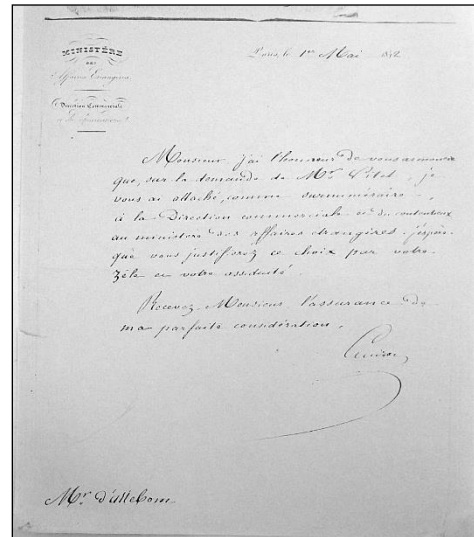 MINISTÈRE
DES
Affaires Etrangères
Direction Commerciale
Paris, le 1er Mai
Monsieur, j'ai l'honneur de vous annoncer
que, sur la demande de Mr. , je
vous ai attaché, comme surnuméraire,
à la Direction commerciale et du contentieux
au ministère des affaires étrangères. j'espère
que vous justifierez ce choix par votre
zèle et votre assiduité
Recevez, Monsieur, l'assurance de
ma parfaite considération.
Mr.